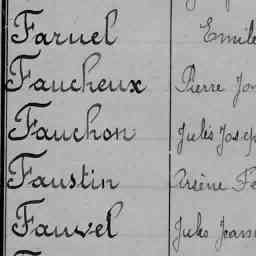 Faruel Emile
Faucheux Pierre
Fauchon Jules
Faustin Arsène
Fauvel Jules